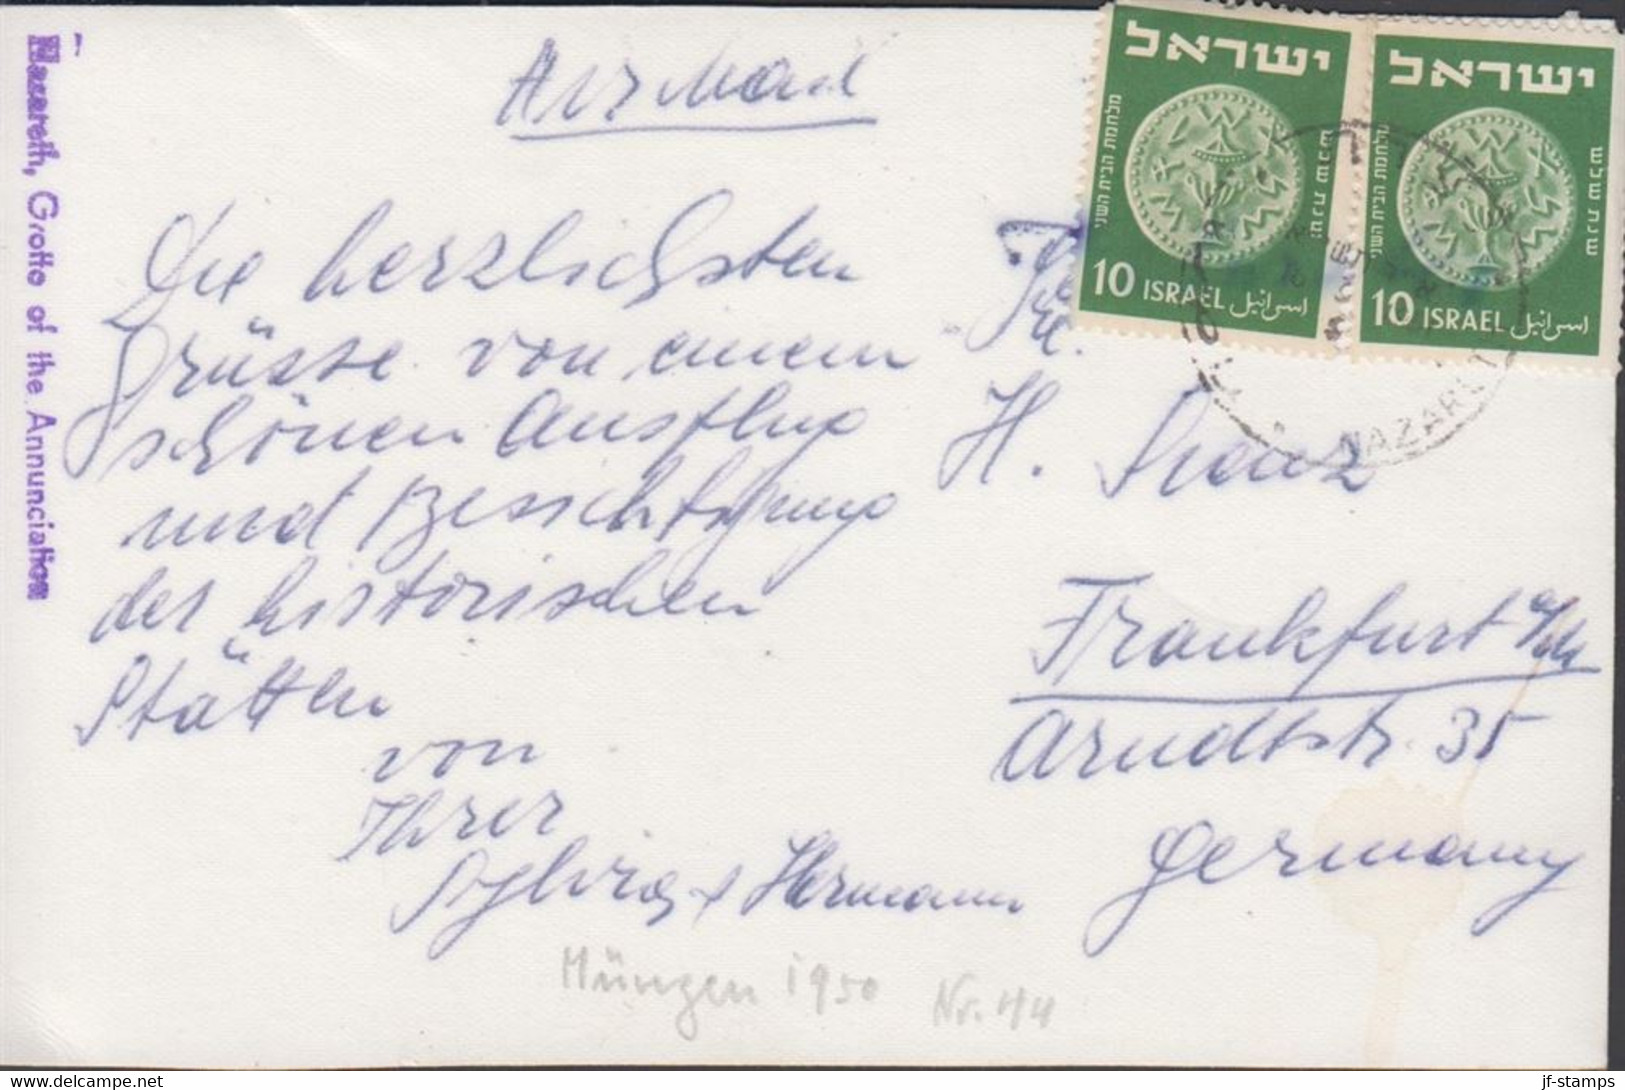 Nazareth, Grotto of the Annunciation
Air Mail
Die herzlichsten
Grüsse von einem
schönen Ausflug
und Besichtigung
der historischen
Stätten
von
Ihrer
Sylvia + Hermann
Münzen 1950 Nr. 44
ישראל
מלחמת הבית השני
שנת שלש
10 ISRAEL اسرائيل
ישראל
מלחמת הבית השני
שנת שלש
10 ISRAEL اسرائيل
NAZARETH
H.
Frankfurt a/M
Arndtstr. 35
Germany
www.delcampe.net
jf-stamps